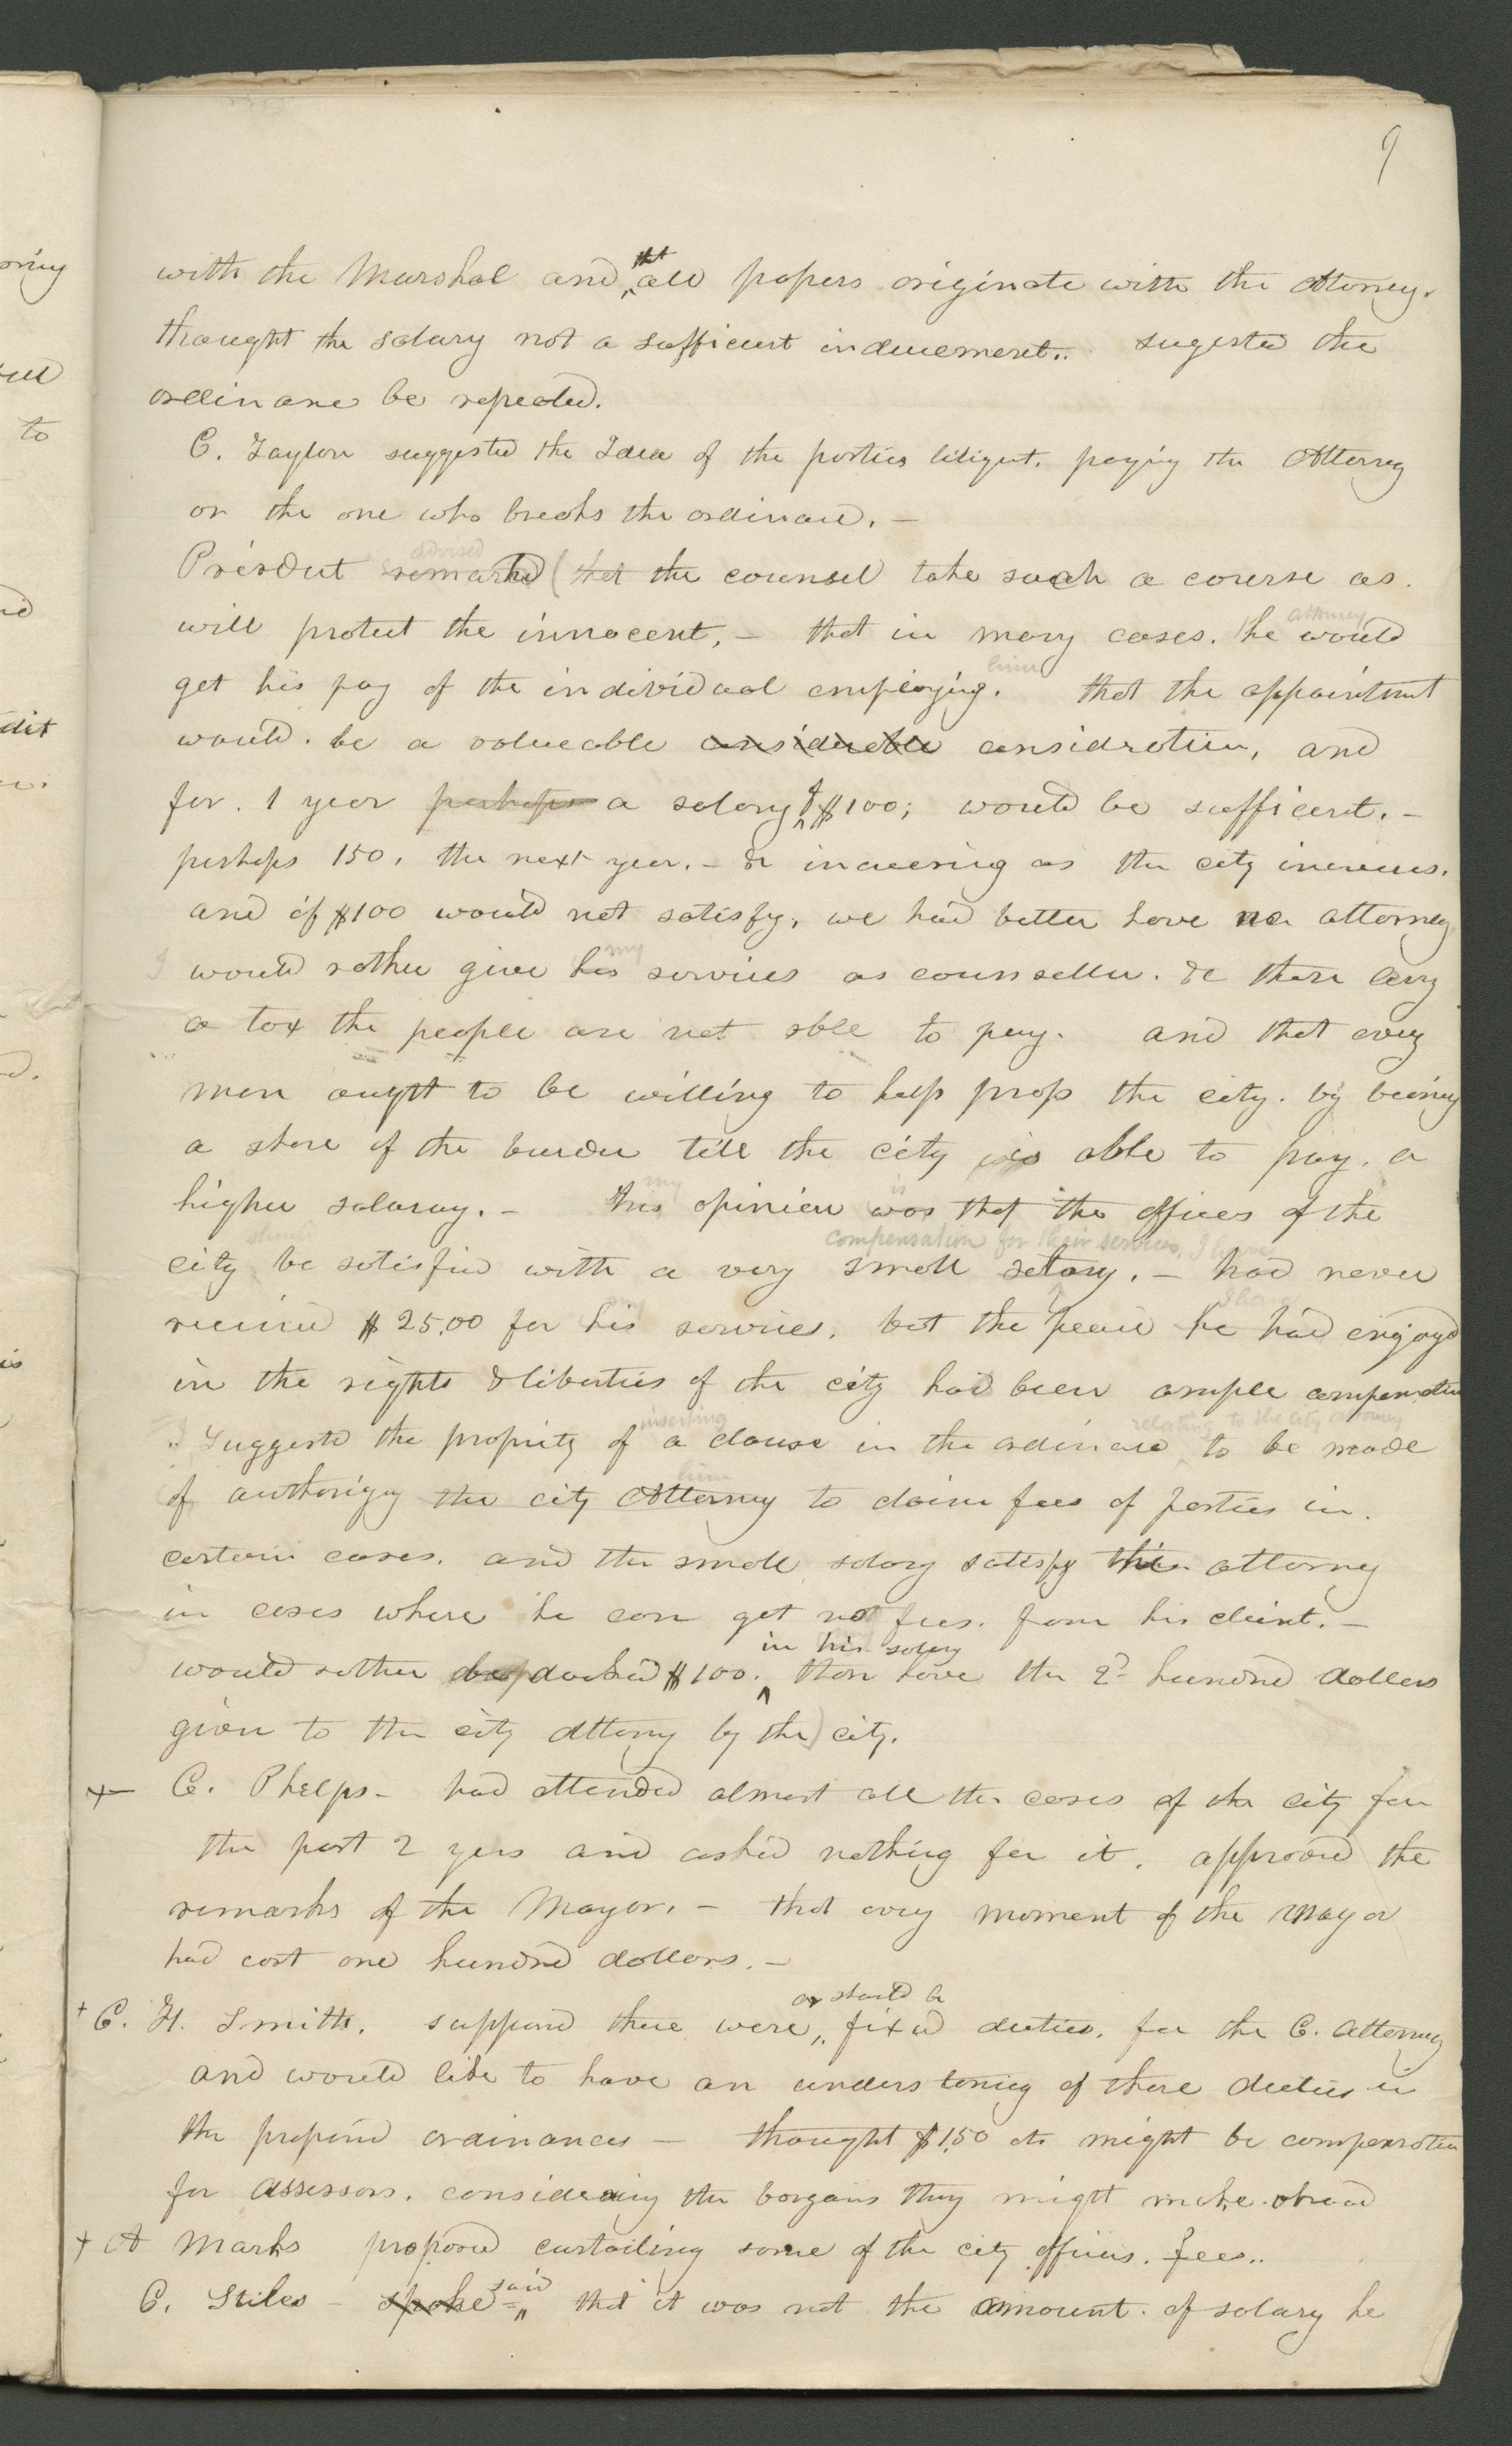 9
with the Marshal and that all papers originate with the Attorney.
thought the salary not a sufficient inducement.. sugested the
ordinance be repealed.
C. Taylor suggested the Idea of the parties litigent. paying the Attorney
or the one who breaks the ordinance. –
advised
Presidet remarked (that the counsel take such a course as.
will protect the innocent, – that in many cases. he would
attorney
get his pay of the individual employing. that the appointmnt
him
would. be a valueable considerable considration, and
for. 1 year perhaps a salary of $100; would be sufficent. –
perhaps 150. the next year. – & increasing as the city increases.
and if $100 would not satisfy, we had better have no attorney
I would rather give his services as counseller. & then levy
my
a tax the people are not able to pay. and that every
man ought to be willing to help prop the city. by beaing
a share of the burden till the city is able to pay. a
higher salaray. – his opinion was that the officers of the
my is
should compensation for their services, I have
city be satisfied with a very small salary. – had never
received $25.00 for his services. but the peace he had enjoyed
my I have
in the rights & liberties of the city had been ample compensation
inserting relating to the city attorney
I Suggested the propriety of a clause in the ordinance to be made
him
of authorizing the city Attorney to claim fees of parties in.
certain cases. and the small salary satisfy the attorney
in cases where he can get not fees. from his client. –
in his salary
would rather be docked $100. than have the 2d hundred dollars
given to the city attorny by the) city.
C. Phelps – had attended almost all the cases of the city for
the past 2 yers and asked nothing for it. approved the
remarks of the Mayor. – that every moment of the Mayor
had cost one hundred dollars. –
or should be
+ C. H. Smith. supposed there were, fixed duties. for the C. Attorney
and would like to have an understaning of those duties in
the proposed ordinances – thought $1,50 cts might be compensation
for assessors. considering the bargains they might make. ahead
+ A Marks proposed curtailing some of the city officers. fees..
C. Stiles – spoke said that it was not the amount. of salary he